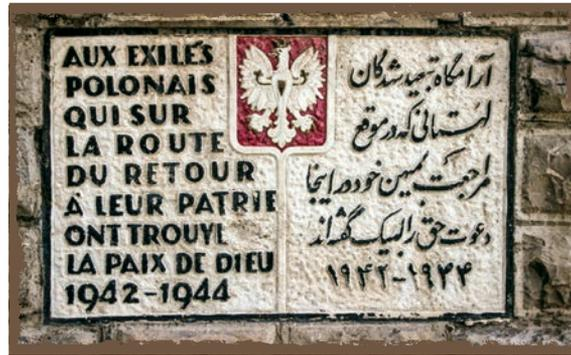 AUX EXILÉS
POLONAIS
QUI SUR
LA ROUTE
DU RETOUR
A LEUR PATRIE
ONT TROUVE
LA PAIX DE DIEU
1942-1944
آرامگاه تبعید شدگان
لهستانی که در موقع
مراجعت بمیهن خود در اینجا
دعوت حق را لبیک گفته‌اند
۱۹۴۲-۱۹۴۴